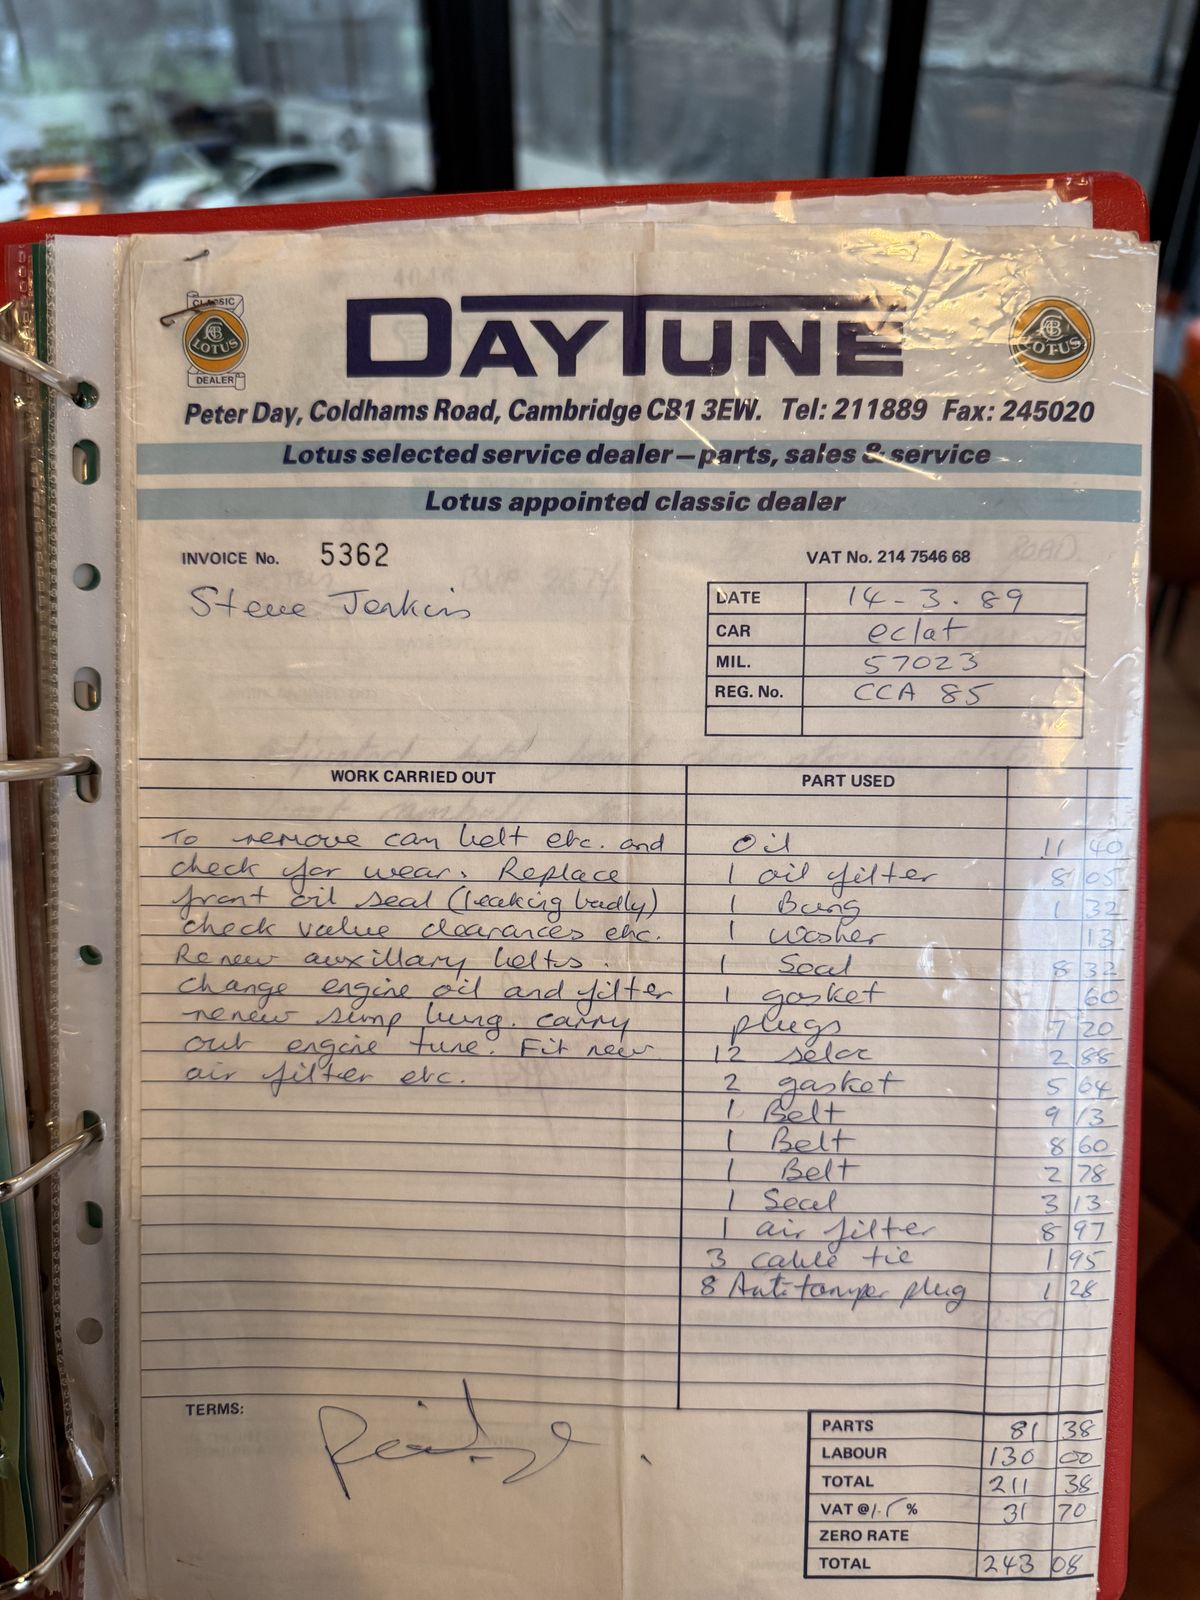 CLASSIC
LOTUS
DEALER
DAYTUNE
LOTUS
Peter Day, Coldhams Road, Cambridge CB1 3EW. Tel: 211889 Fax: 245020
Lotus selected service dealer—parts, sales & service
Lotus appointed classic dealer
INVOICE No. 5362
VAT No. 214 7546 68
Steve Jenkins
DATE 14-3.89
CAR eclat
MIL. 57023
REG. No. CCA 85
WORK CARRIED OUT PART USED
To remove cam belt etc. and Oil 11 40
check for wear. Replace 1 oil filter 8 05
front oil seal (leaking badly) 1 Bung 1 32
check valve clearances etc. 1 washer 13
Renew auxillary belts. 1 Seal 8 32
change engine oil and filter 1 gasket 60
renew sump bung. carry plugs 7 20
out engine tune. Fit new 12 seloc 2 88
air filter etc. 2 gasket 5 64
1 Belt 9 13
1 Belt 8 60
1 Belt 2 78
1 Seal 3 13
1 air filter 8 97
3 cable tie 1 95
8 Anti tamper plug 1 28
TERMS:
PARTS 81 38
LABOUR 130 00
TOTAL 211 38
VAT @ 15 % 31 70
ZERO RATE
TOTAL 243 08